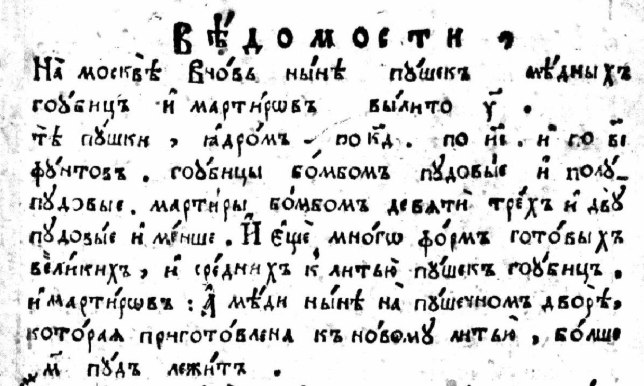 Вѣ́домости,
На̀ москвѣ̀ вчо́въ ны́нѣ пу́шекъ мѣ́дныхъ
гоу́бицъ и҆ марти́рѡвъ вы́лито у҃ .
тѣ̀ пу́шки , ꙗ҆дро́мъ – по к҃д . по и҃і . и҆ по в҃і
фу́нтовъ . гоу́бицы бо́мбомъ пудовы́е и҆ полу́‒
пудовые . марти́ры бо́мбомъ девяти́ тре́хъ и҆ дву̀
пудовы́е и҆ ме́нше . И҆ е҆щѐ мно́гѡ фо́рмъ гото́выхъ
вели́кихъ , и҆ сре́днихъ к̾ литью̀ пу́шекъ гоу́бицъ .
и҆ марти́рѡвъ : А҆ мѣ́ди ны́нѣ на̀ пу́шечномъ дворѣ̀ ,
кото́рая пригото́влена къ но́вому литью̀ , бо́лше
м҃ пу́дъ лежи́тъ .